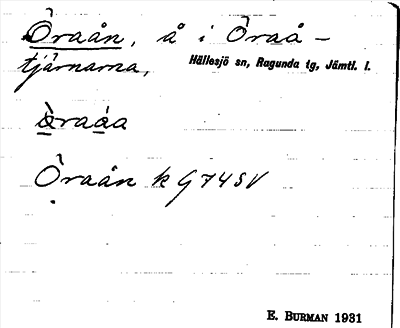 Öraån, å i Öraå-
tjärnarna, Hällesjö sn, Ragunda tg, Jämtl. l.
Öraån k G74SV
E. BURMAN 1931